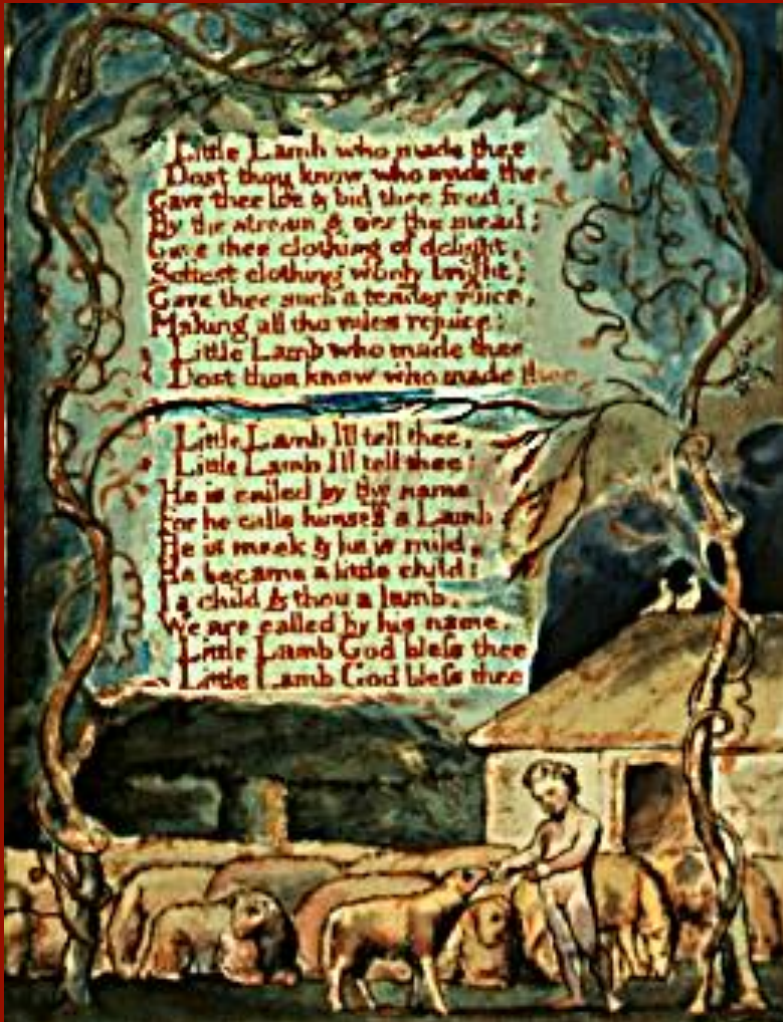 Little Lamb who made thee
Dost thou know who made thee
Gave thee life & bid thee feed.
By the stream & o'er the mead;
Gave thee clothing of delight,
Softest clothing wooly bright;
Gave thee such a tender voice,
Making all the vales rejoice:
Little Lamb who made thee
Dost thou know who made thee
Little Lamb I'll tell thee,
Little Lamb I'll tell thee:
He is called by thy name,
For he calls himself a Lamb:
He is meek & he is mild,
He became a little child:
I a child & thou a lamb,
We are called by his name.
Little Lamb God bleſs thee
Little Lamb God bleſs thee